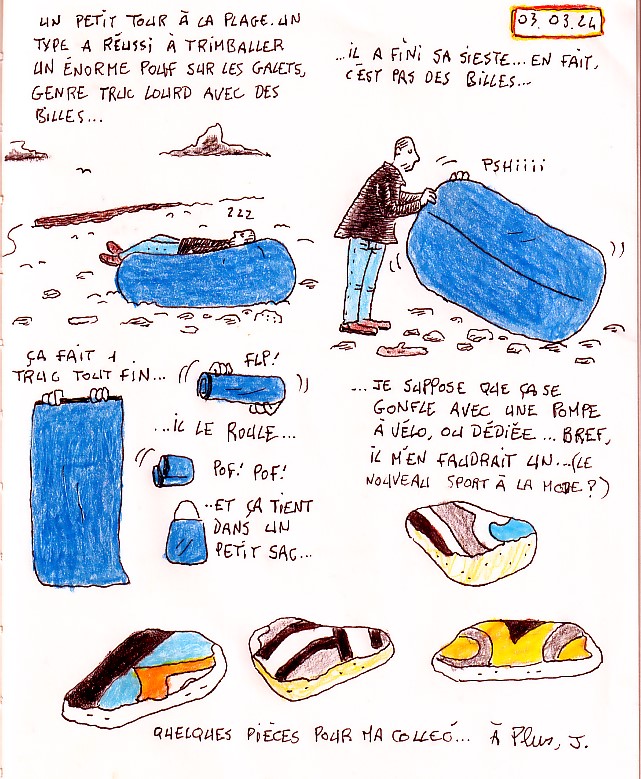 UN PETIT TOUR À LA PLAGE. UN
TYPE A RÉUSSI À TRIMBALLER
UN ÉNORME POUF SUR LES GALETS,
GENRE TRUC LOURD AVEC DES
BILLES...
03.03.24
...IL A FINI SA SIESTE... EN FAIT,
C'EST PAS DES BILLES...
ZZZ
PSHiiii
ÇA FAIT 1
TRUC TOUT FIN...
FLP!
...IL LE ROULE...
POF! POF!
...ET ÇA TIENT
DANS UN
PETIT SAC...
...JE SUPPOSE QUE ÇA SE
GONFLE AVEC UNE POMPE
À VÉLO, OU DÉDIÉE... BREF,
IL M'EN FAUDRAIT UN...(LE
NOUVEAU SPORT À LA MODE?)
QUELQUES PIÈCES POUR MA COLLEC... À Plus, J.